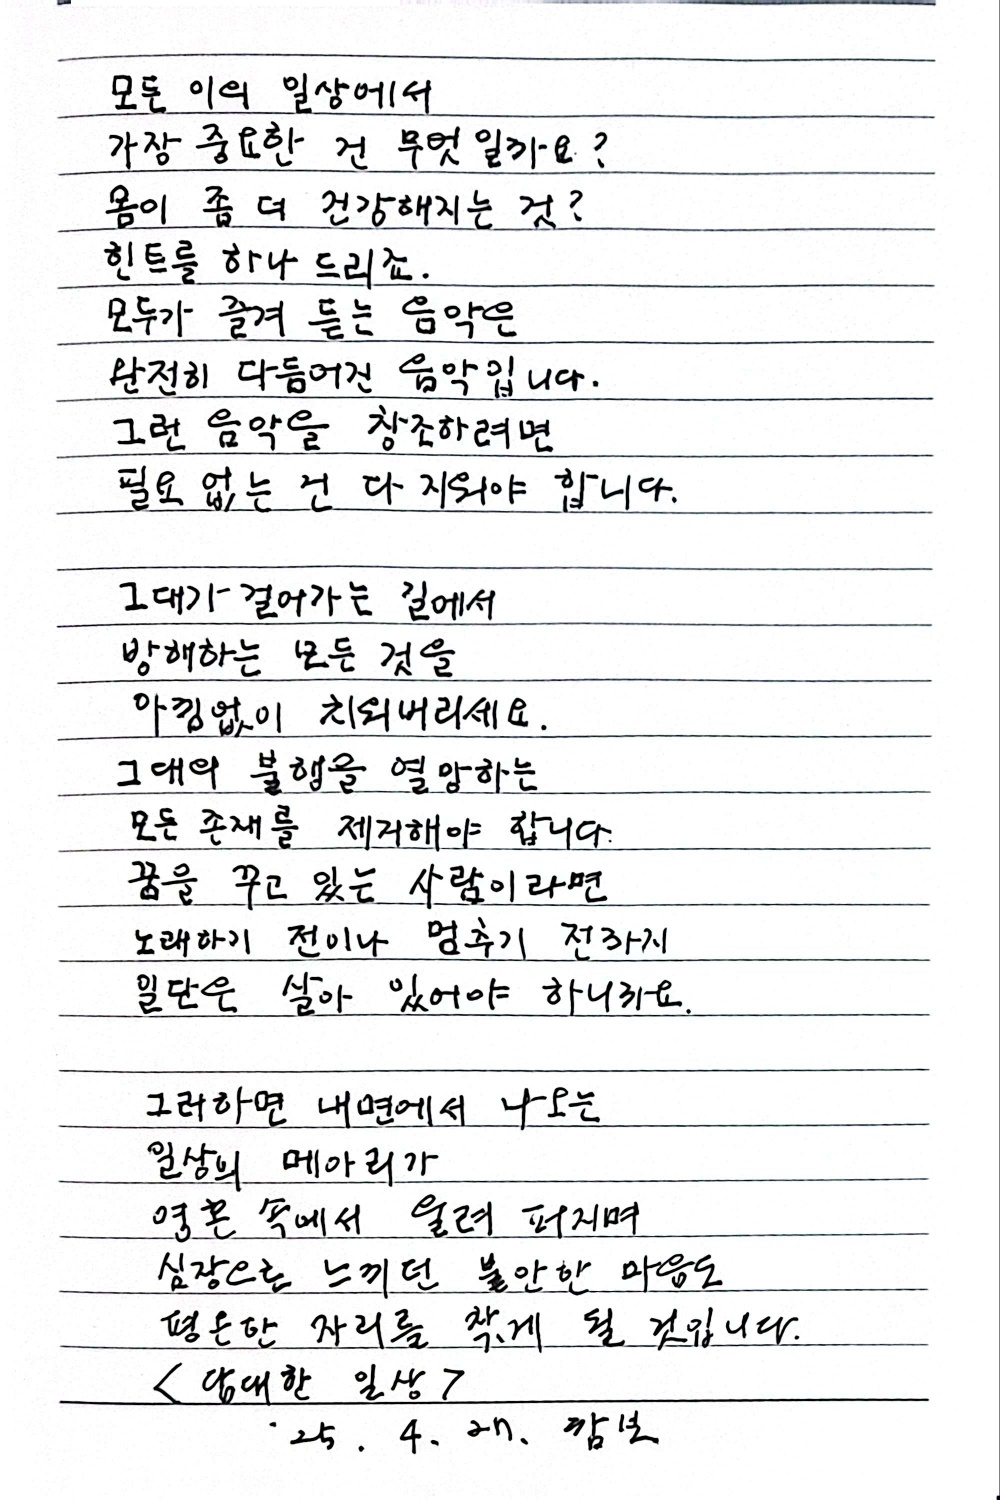 모든 이의 일상에서
가장 중요한 건 무엇일까요?
몸이 좀 더 건강해지는 것?
힌트를 하나 드리죠.
모두가 즐겨 듣는 음악은
완전히 다듬어진 음악입니다.
그런 음악을 창조하려면
필요 없는 건 다 지워야 합니다.
그대가 걸어가는 길에서
방해하는 모든 것을
아낌없이 치워버리세요.
그대의 불행을 열망하는
모든 존재를 제거해야 합니다.
꿈을 꾸고 있는 사람이라면
노래하기 전이나 멈추기 전까지
일단은 살아 있어야 하니까요.
그러하면 내면에서 나오는
일상의 메아리가
영혼 속에서 울려 퍼지며
심장으로 느끼던 불안한 마음도
평온한 자리를 찾게 될 것입니다.
<담대한 일상>
'25. 4. 27. 깜보